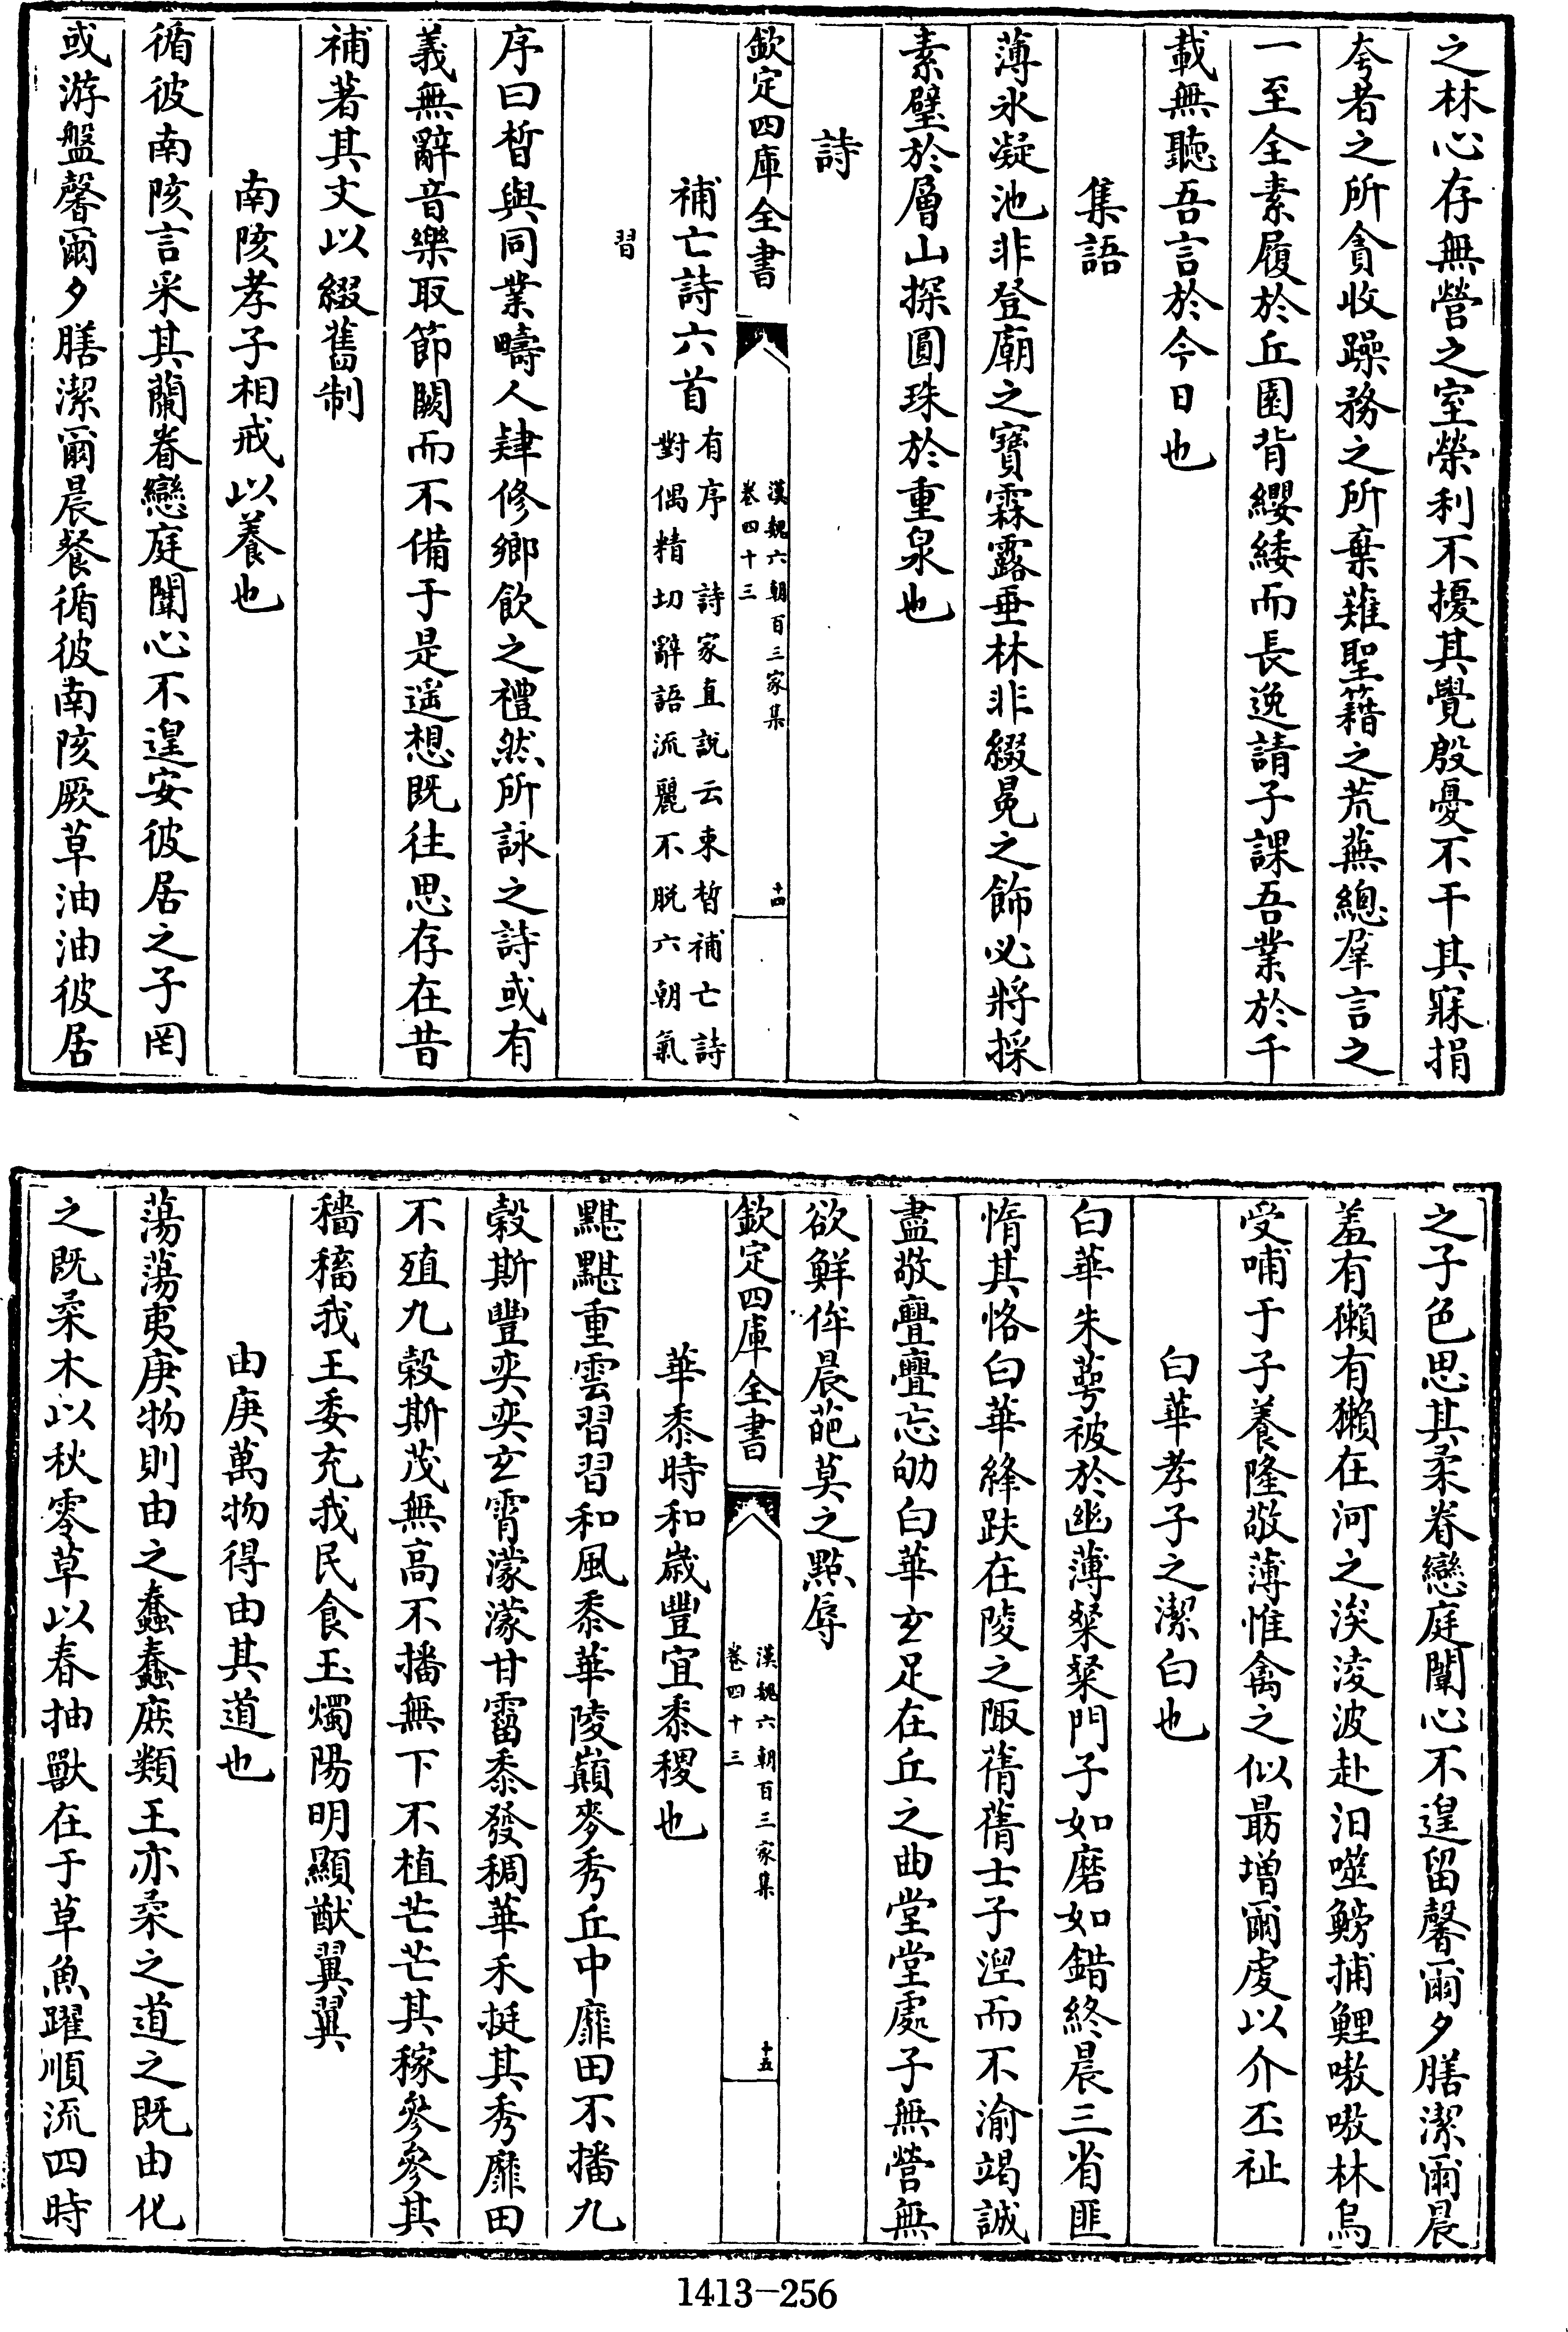 之林心存無營之室榮利不擾其覺殷憂不干其寐捐
夸者之所貪收躁務之所棄薙聖籍之荒蕪總羣言之
一至全素履於丘園背纓緌而長逸請子課吾業於千
載無聽吾言於今日也
集語
薄氷凝池非登廟之寶霖露垂林非綴冕之飾必將採
素璧於層山探圓珠於重泉也
詩
欽定四庫全書
漢魏六朝百三家集
卷四十三
十四
補亡詩六首
有序 詩家直説云束皙補亡詩
對偶精切辭語流麗不脱六朝氣
習
序曰皙與同業疇人肄修鄉飲之禮然所詠之詩或有
義無辭音樂取節闕而不備于是遥想既往思存在昔
補著其文以綴舊制
南陔孝子相戒以養也
循彼南陔言采其蘭眷戀庭闈心不遑安彼居之子罔
或游盤馨爾夕膳潔爾晨餐循彼南陔厥草油油彼居
之子色思其柔眷戀庭闈心不遑留馨爾夕膳潔爾晨
羞有獺有獺在河之涘淩波赴汨噬鰟捕鯉嗷嗷林烏
受哺于子養隆敬薄惟禽之似朂增爾虔以介丕祉
白華孝子之潔白也
白華朱萼被於幽薄粲粲門子如磨如錯終晨三省匪
惰其恪白華絳趺在陵之陬蒨蒨士子湼而不渝竭誠
盡敬亹亹忘劬白華玄足在丘之曲堂堂處子無營無
欲鮮侔晨葩莫之點辱
欽定四庫全書
漢魏六朝百三家集
卷四十三
十五
華黍時和嵗豐宜黍稷也
黮黮重雲習習和風黍華陵巔麥秀丘中靡田不播九
榖斯豐奕奕玄霄濛濛甘霤黍發稠華禾挺其秀靡田
不殖九榖斯茂無高不播無下不植芒芒其稼參參其
穡穡我王委充我民食玉燭陽明顯猷翼翼
由庚萬物得由其道也
蕩蕩夷庚物則由之蠢蠢庶類王亦柔之道之既由化
之既柔木以秋零草以春抽獸在于草魚躍順流四時
1413-256